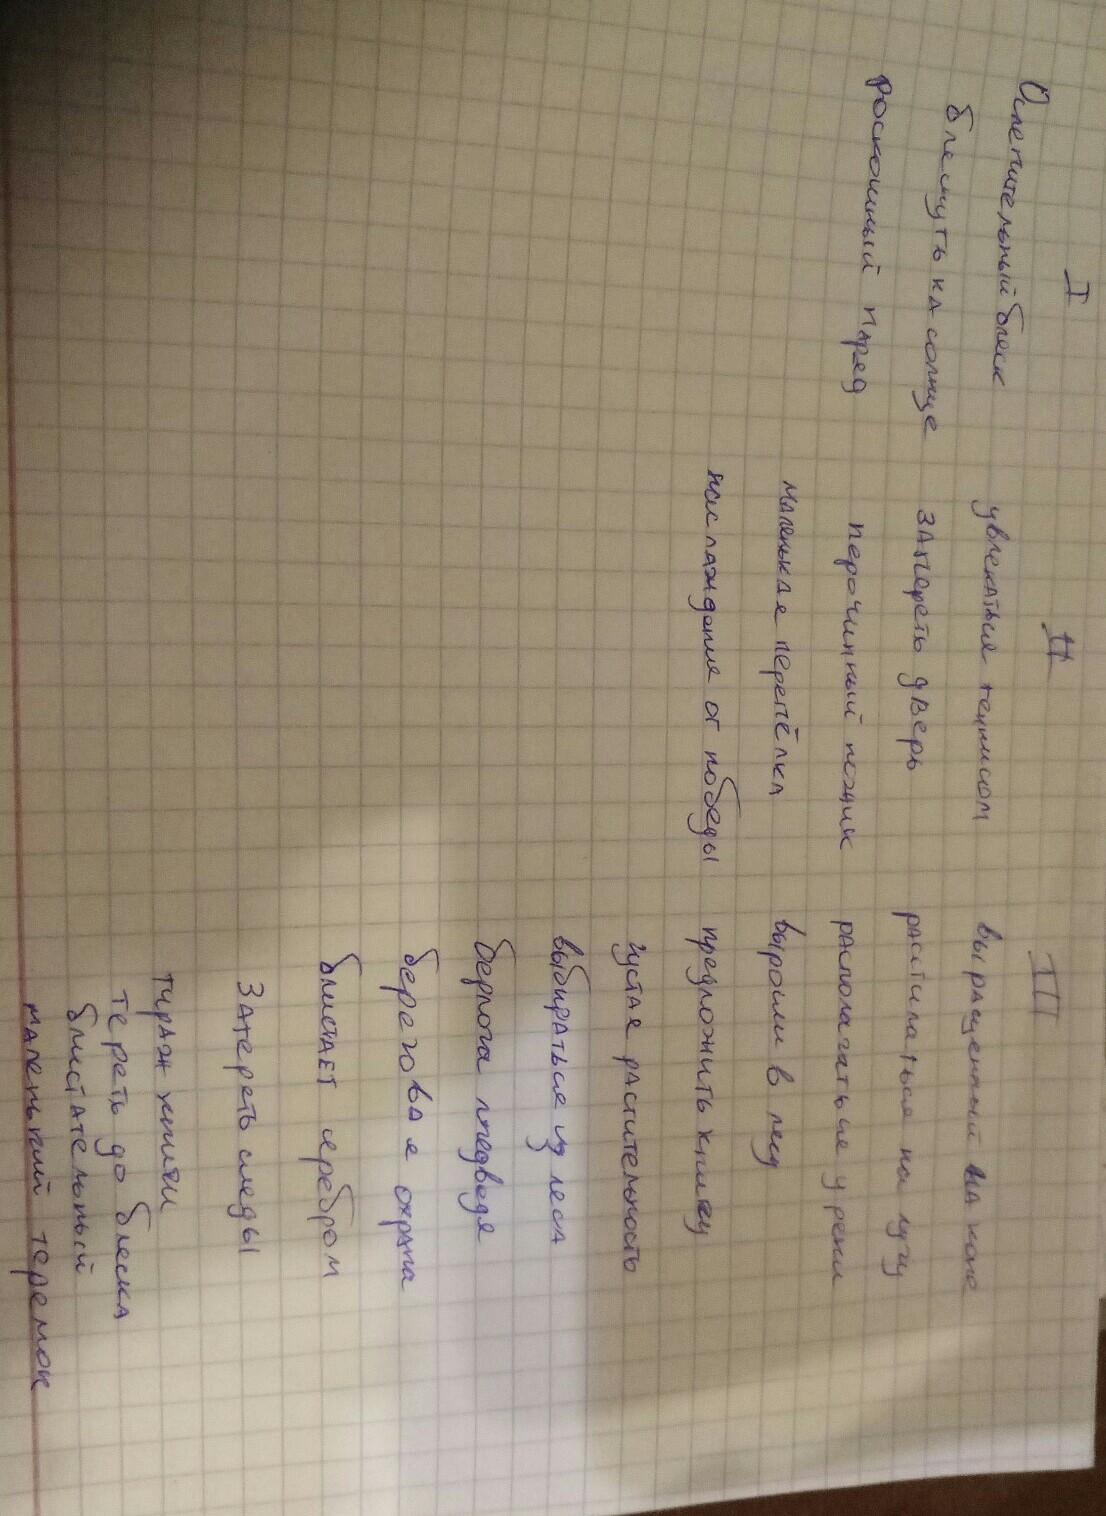 I
Ослепительный блеск
блеснуть на солнце
роскошный парад
II
увлекаться теннисом
запереть дверь
перочинный ножик
маленькая перепёлка
наслаждение от победы
III
выращенный на поле
расстилаться на лугу
располагаться у реки
выросли в лесу
предложить книгу
густая растительность
выбираться из леса
берлога медведя
береговая охрана
блистает серебром
затереть следы
тираж книги
тереть до блеска
блистательный
маленький теремок